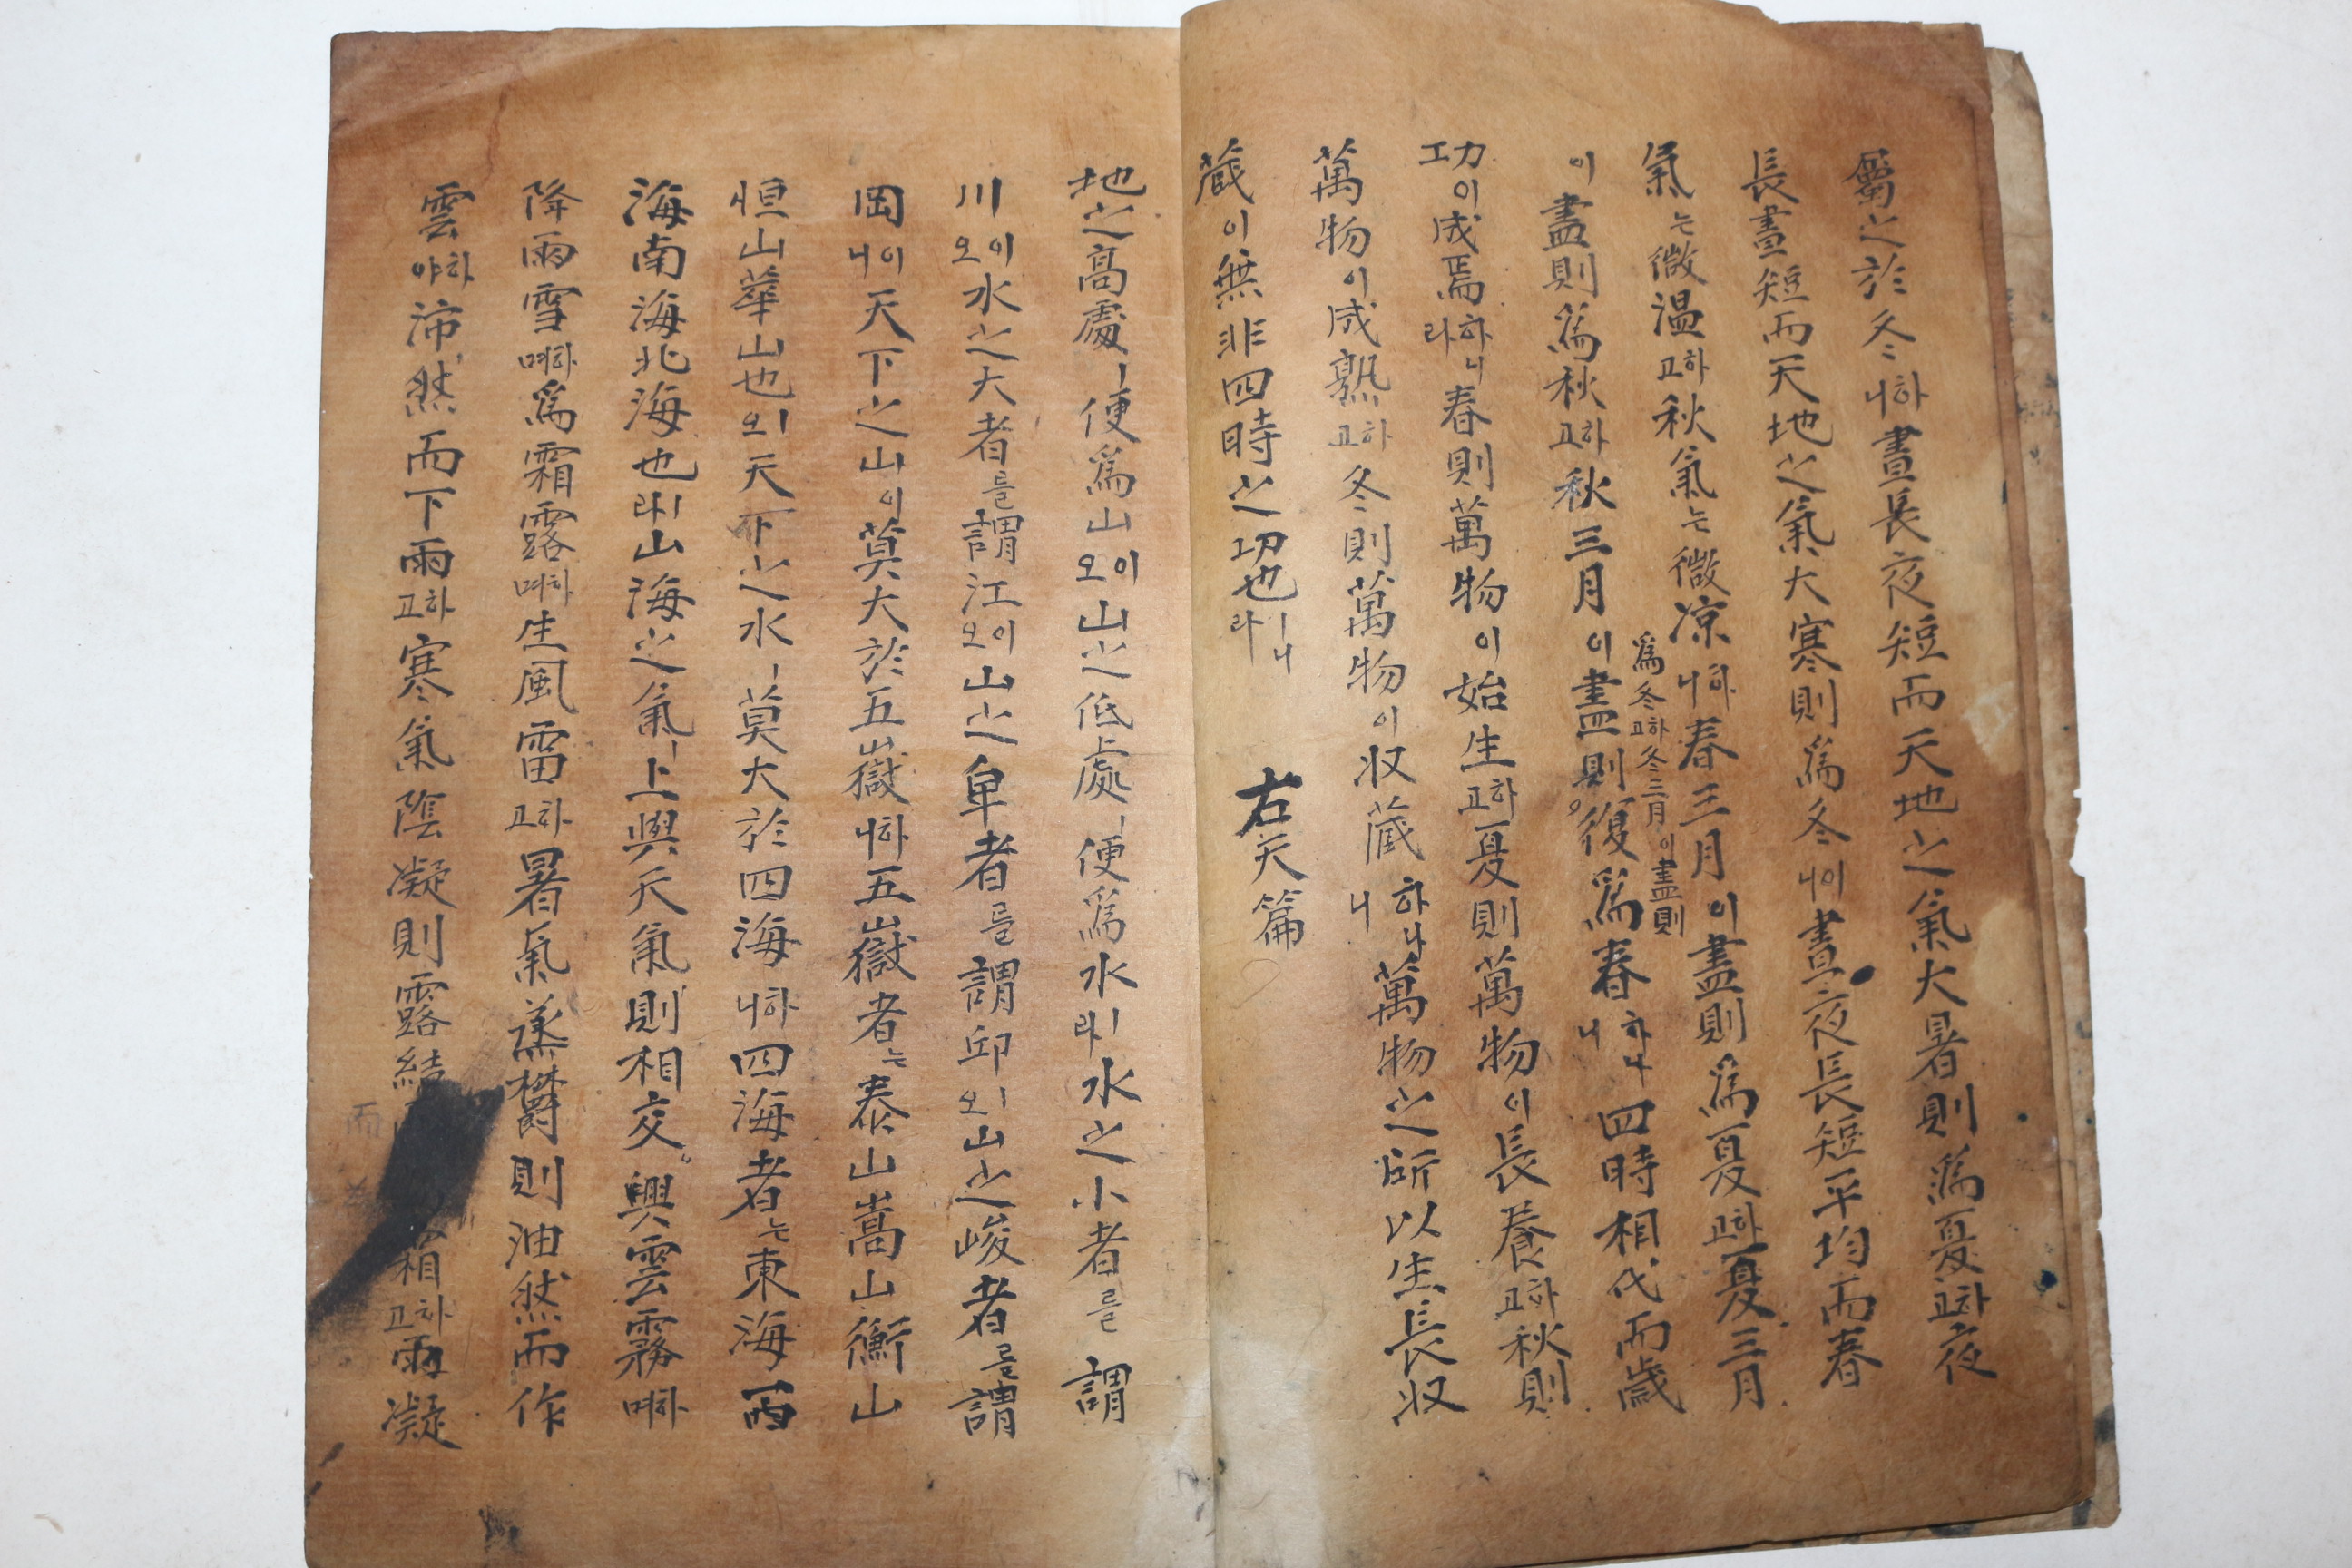 屬之於冬하니晝長夜短而天地之氣大暑則爲夏하고夜
長晝短而天地之氣大寒則爲冬이니晝夜長短平均而春
氣는微温하고秋氣는微凉하니春三月이盡則爲夏하고夏三月
이盡則爲秋하고秋三月이盡則爲冬하고冬三月이盡則復爲春하나니四時相代而歲
功이成焉하니라春則萬物이始生하고夏則萬物이長養하고秋則
萬物이成熟하고冬則萬物이収蔵하나니萬物之所以生長収
蔵이無非四時之功也ㅣ니라 右天篇
地之高處ㅣ便爲山이오山之低處ㅣ便爲水ㅣ라水之小者를謂
川이오水之大者를謂江이오山之卑者를謂邱ㅣ오山之峻者를謂
岡이니天下之山이莫大於五嶽하니五嶽者는泰山嵩山衡山
恒山華山也ㅣ오天下之水ㅣ莫大於四海하니四海者는東海西
海南海北海也ㅣ라山海之氣ㅣ上與天氣則相交興雲霧하며
降雨雪하며爲霜露하며生風雷하고暑氣蒸欝則油然而作
雲하야沛然而下雨하고寒氣陰凝則露結霜하고雨凝